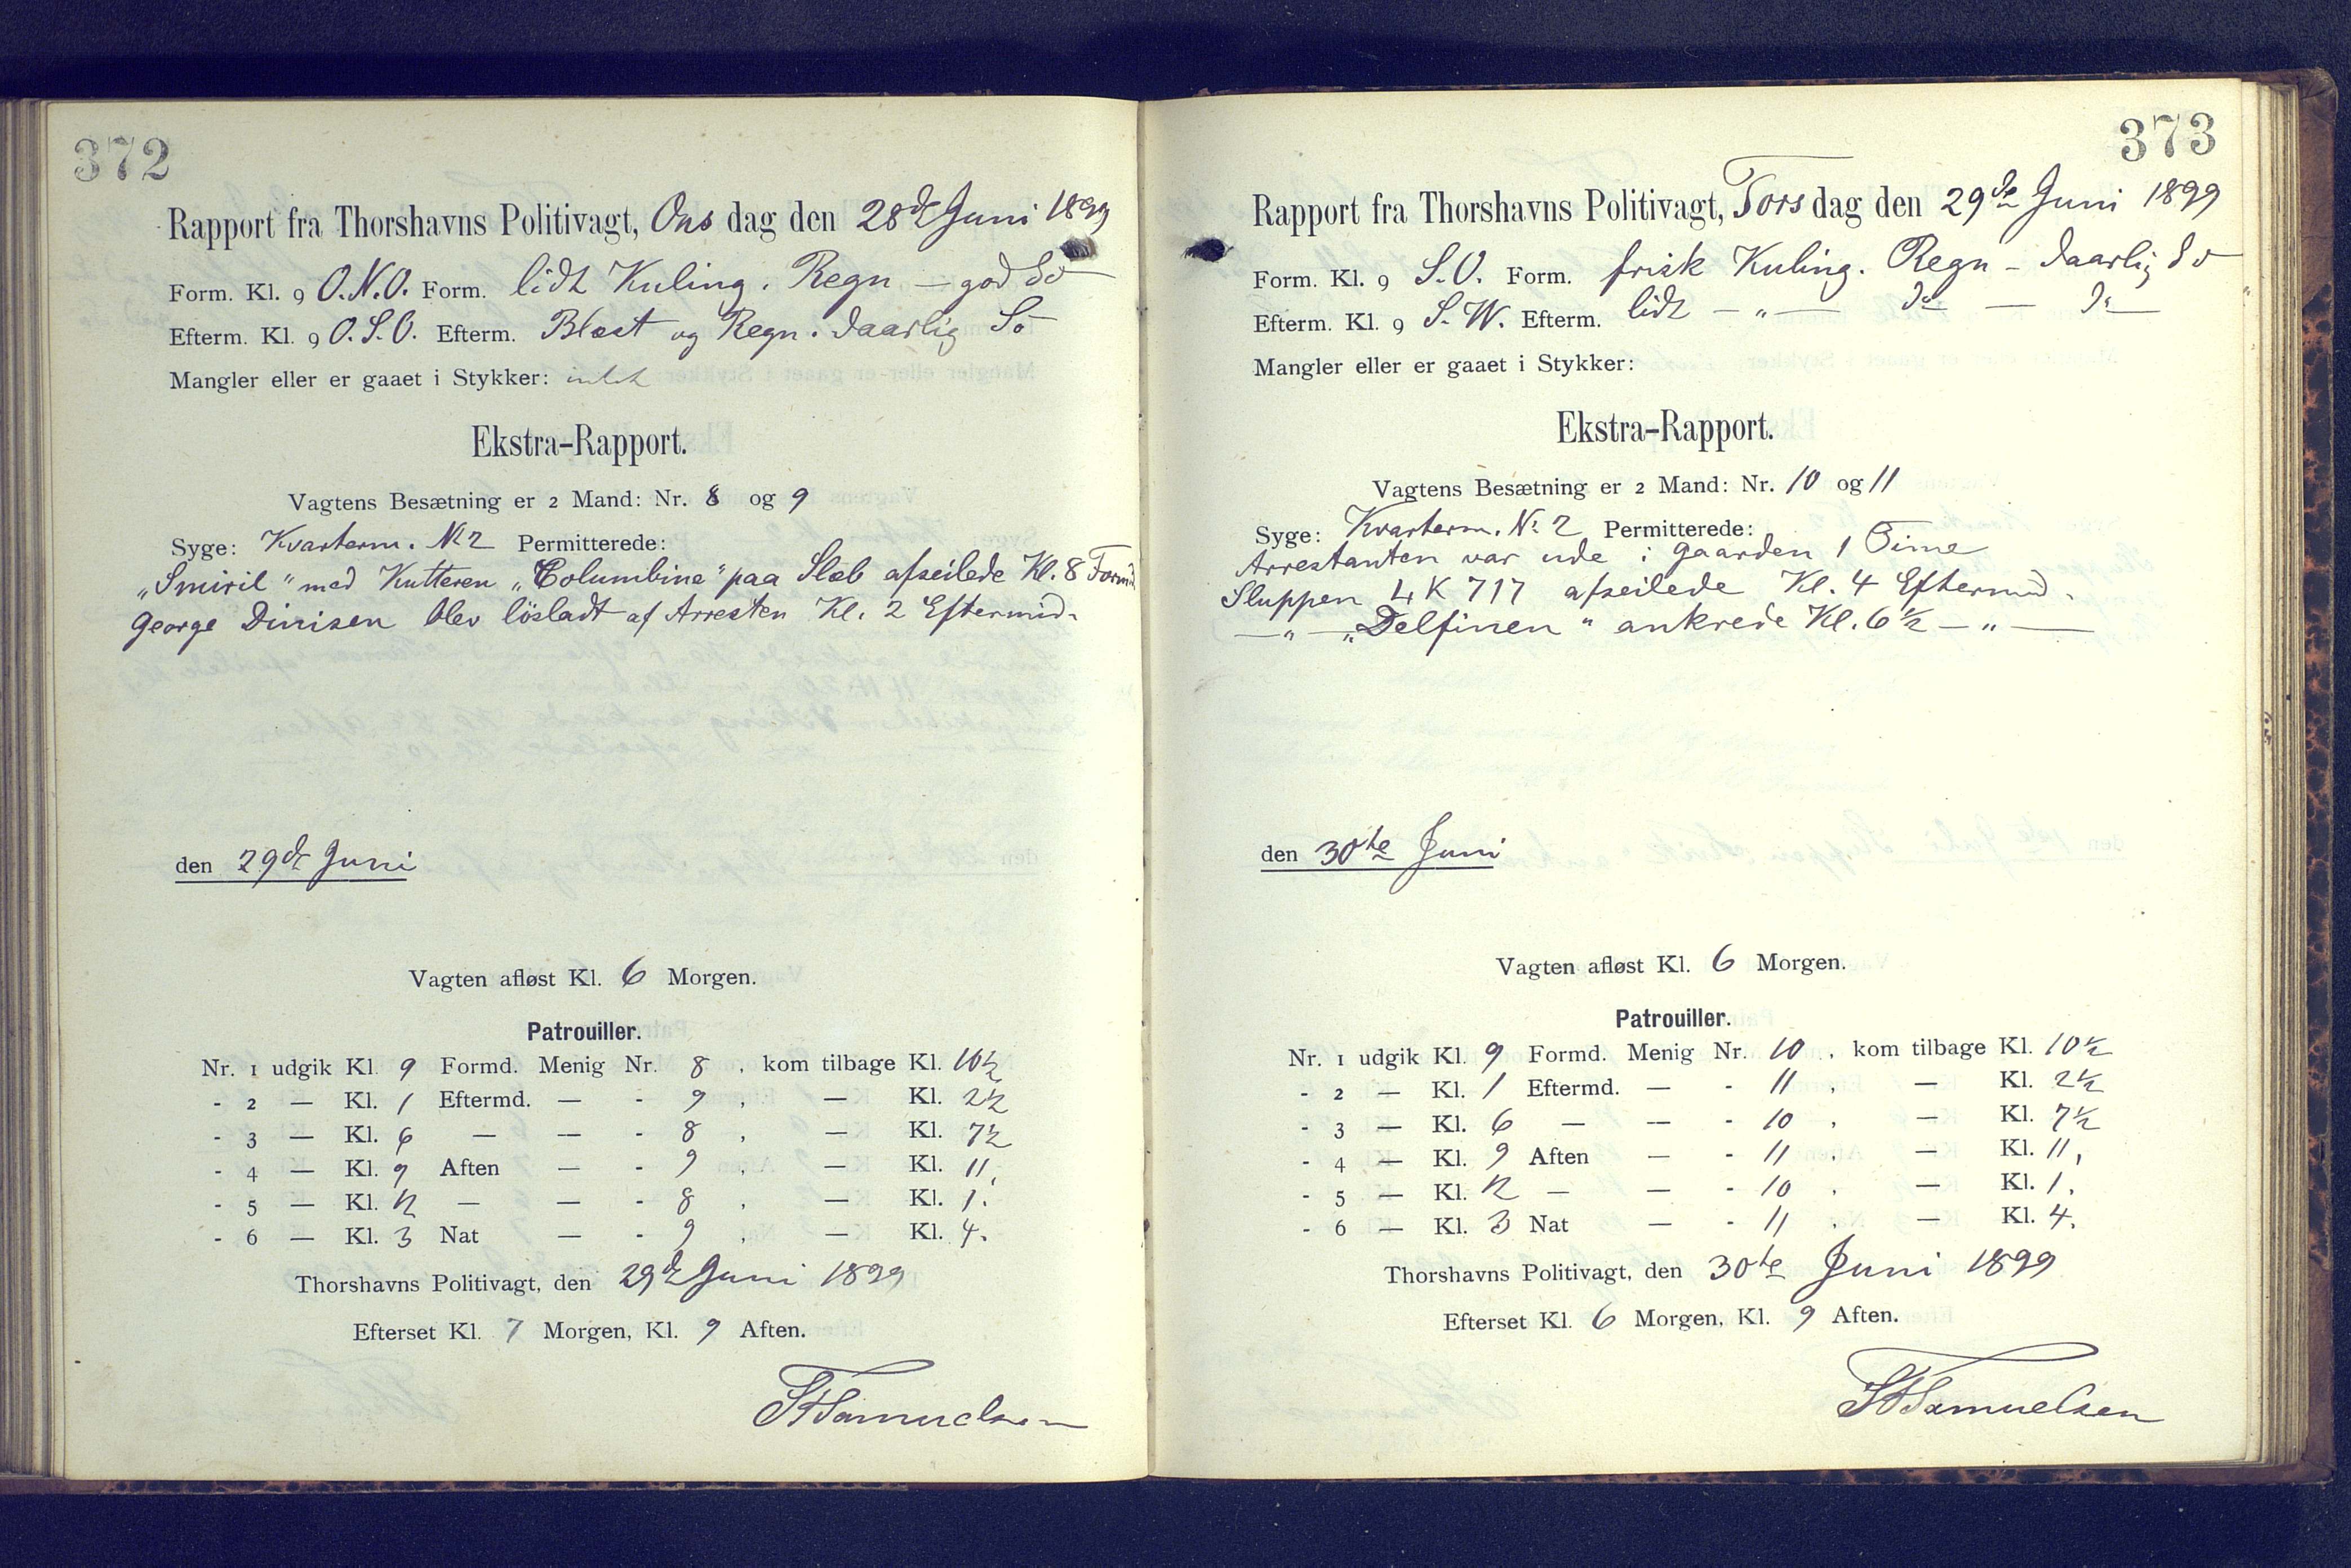 372
Rapport fra Thorshavns Politivagt, Onsdag den 28de Juni 1899
Form. Kl. 9 O.N.O. Form. lidt Kuling. Regn — god Sö
Efterm. Kl. 9 O.S.O. Efterm. Blæst og Regn. daarlig Sö
Mangler eller er gaaet i Stykker: intet
Ekstra-Rapport.
Vagtens Besætning er 2 Mand: Nr. 8 og 9
Syge: Kvarterm. No 2 Permitterede:
„Smiril" med Kutteren „Columbine" paa Slæb afseilede Kl. 8 Formd
George Dinisen blev lösladt af Arresten Kl. 2 Eftermid.
den 29de Juni
Vagten afløst Kl. 6 Morgen.
Patrouiller.
Nr. 1 udgik Kl. 9 Formd. Menig Nr. 8 , kom tilbage Kl. 10½
- 2 — Kl. 1 Eftermd. — - 9 , — Kl. 2½
- 3 — Kl. 6 — — - 8 , — Kl. 7½
- 4 — Kl. 9 Aften — - 9 , — Kl. 11,
- 5 — Kl. 12 — — - 8 , — Kl. 1.
- 6 — Kl. 3 Nat — - 9 , — Kl. 4.
Thorshavns Politivagt, den 29de Juni 1899
Efterset Kl. 7 Morgen, Kl. 9 Aften.
Samuelsen
373
Rapport fra Thorshavns Politivagt, Torsdag den 29de Juni 1899
Form. Kl. 9 S.O. Form. frisk Kuling. Regn — daarlig Sö
Efterm. Kl. 9 S.W. Efterm. lidt — „ — do — do
Mangler eller er gaaet i Stykker:
Ekstra-Rapport.
Vagtens Besætning er 2 Mand: Nr. 10 og 11
Syge: Kvarterm. No 2 Permitterede:
Arrestanten var ude i Gaarden 1 Time
Sluppen LK 717 afseilede Kl. 4 Eftermid.
— „ — „Delfinen" ankrede Kl. 6½ — „ —
den 30te Juni
Vagten afløst Kl. 6 Morgen.
Patrouiller.
Nr. 1 udgik Kl. 9 Formd. Menig Nr. 10 , kom tilbage Kl. 10½
- 2 — Kl. 1 Eftermd. — - 11 , — Kl. 2½
- 3 — Kl. 6 — — - 10 , — Kl. 7½
- 4 — Kl. 9 Aften — - 11 , — Kl. 11,
- 5 — Kl. 12 — — - 10 , — Kl. 1.
- 6 — Kl. 3 Nat — - 11 , — Kl. 4.
Thorshavns Politivagt, den 30te Juni 1899
Efterset Kl. 6 Morgen, Kl. 9 Aften.
Samuelsen